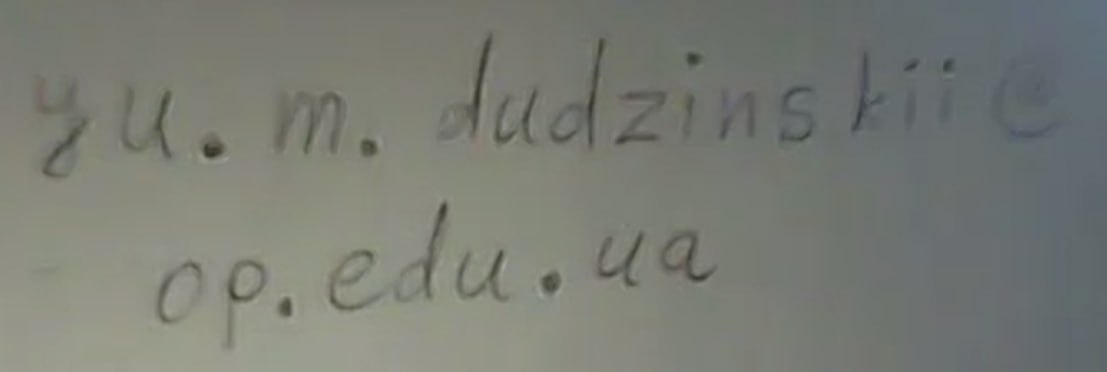 yu.m.dudzinskii@
op.edu.ua